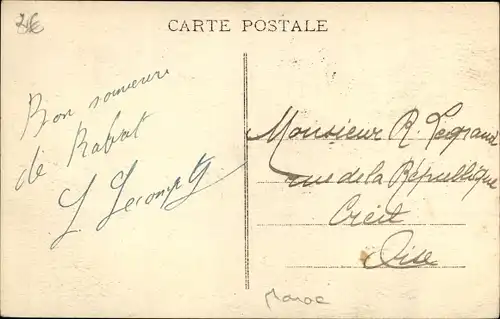 CARTE POSTALE
Bon souvenir
de Rabat
Monsieur R. Legrand
rue de la République
Creil
Oise
Maroc